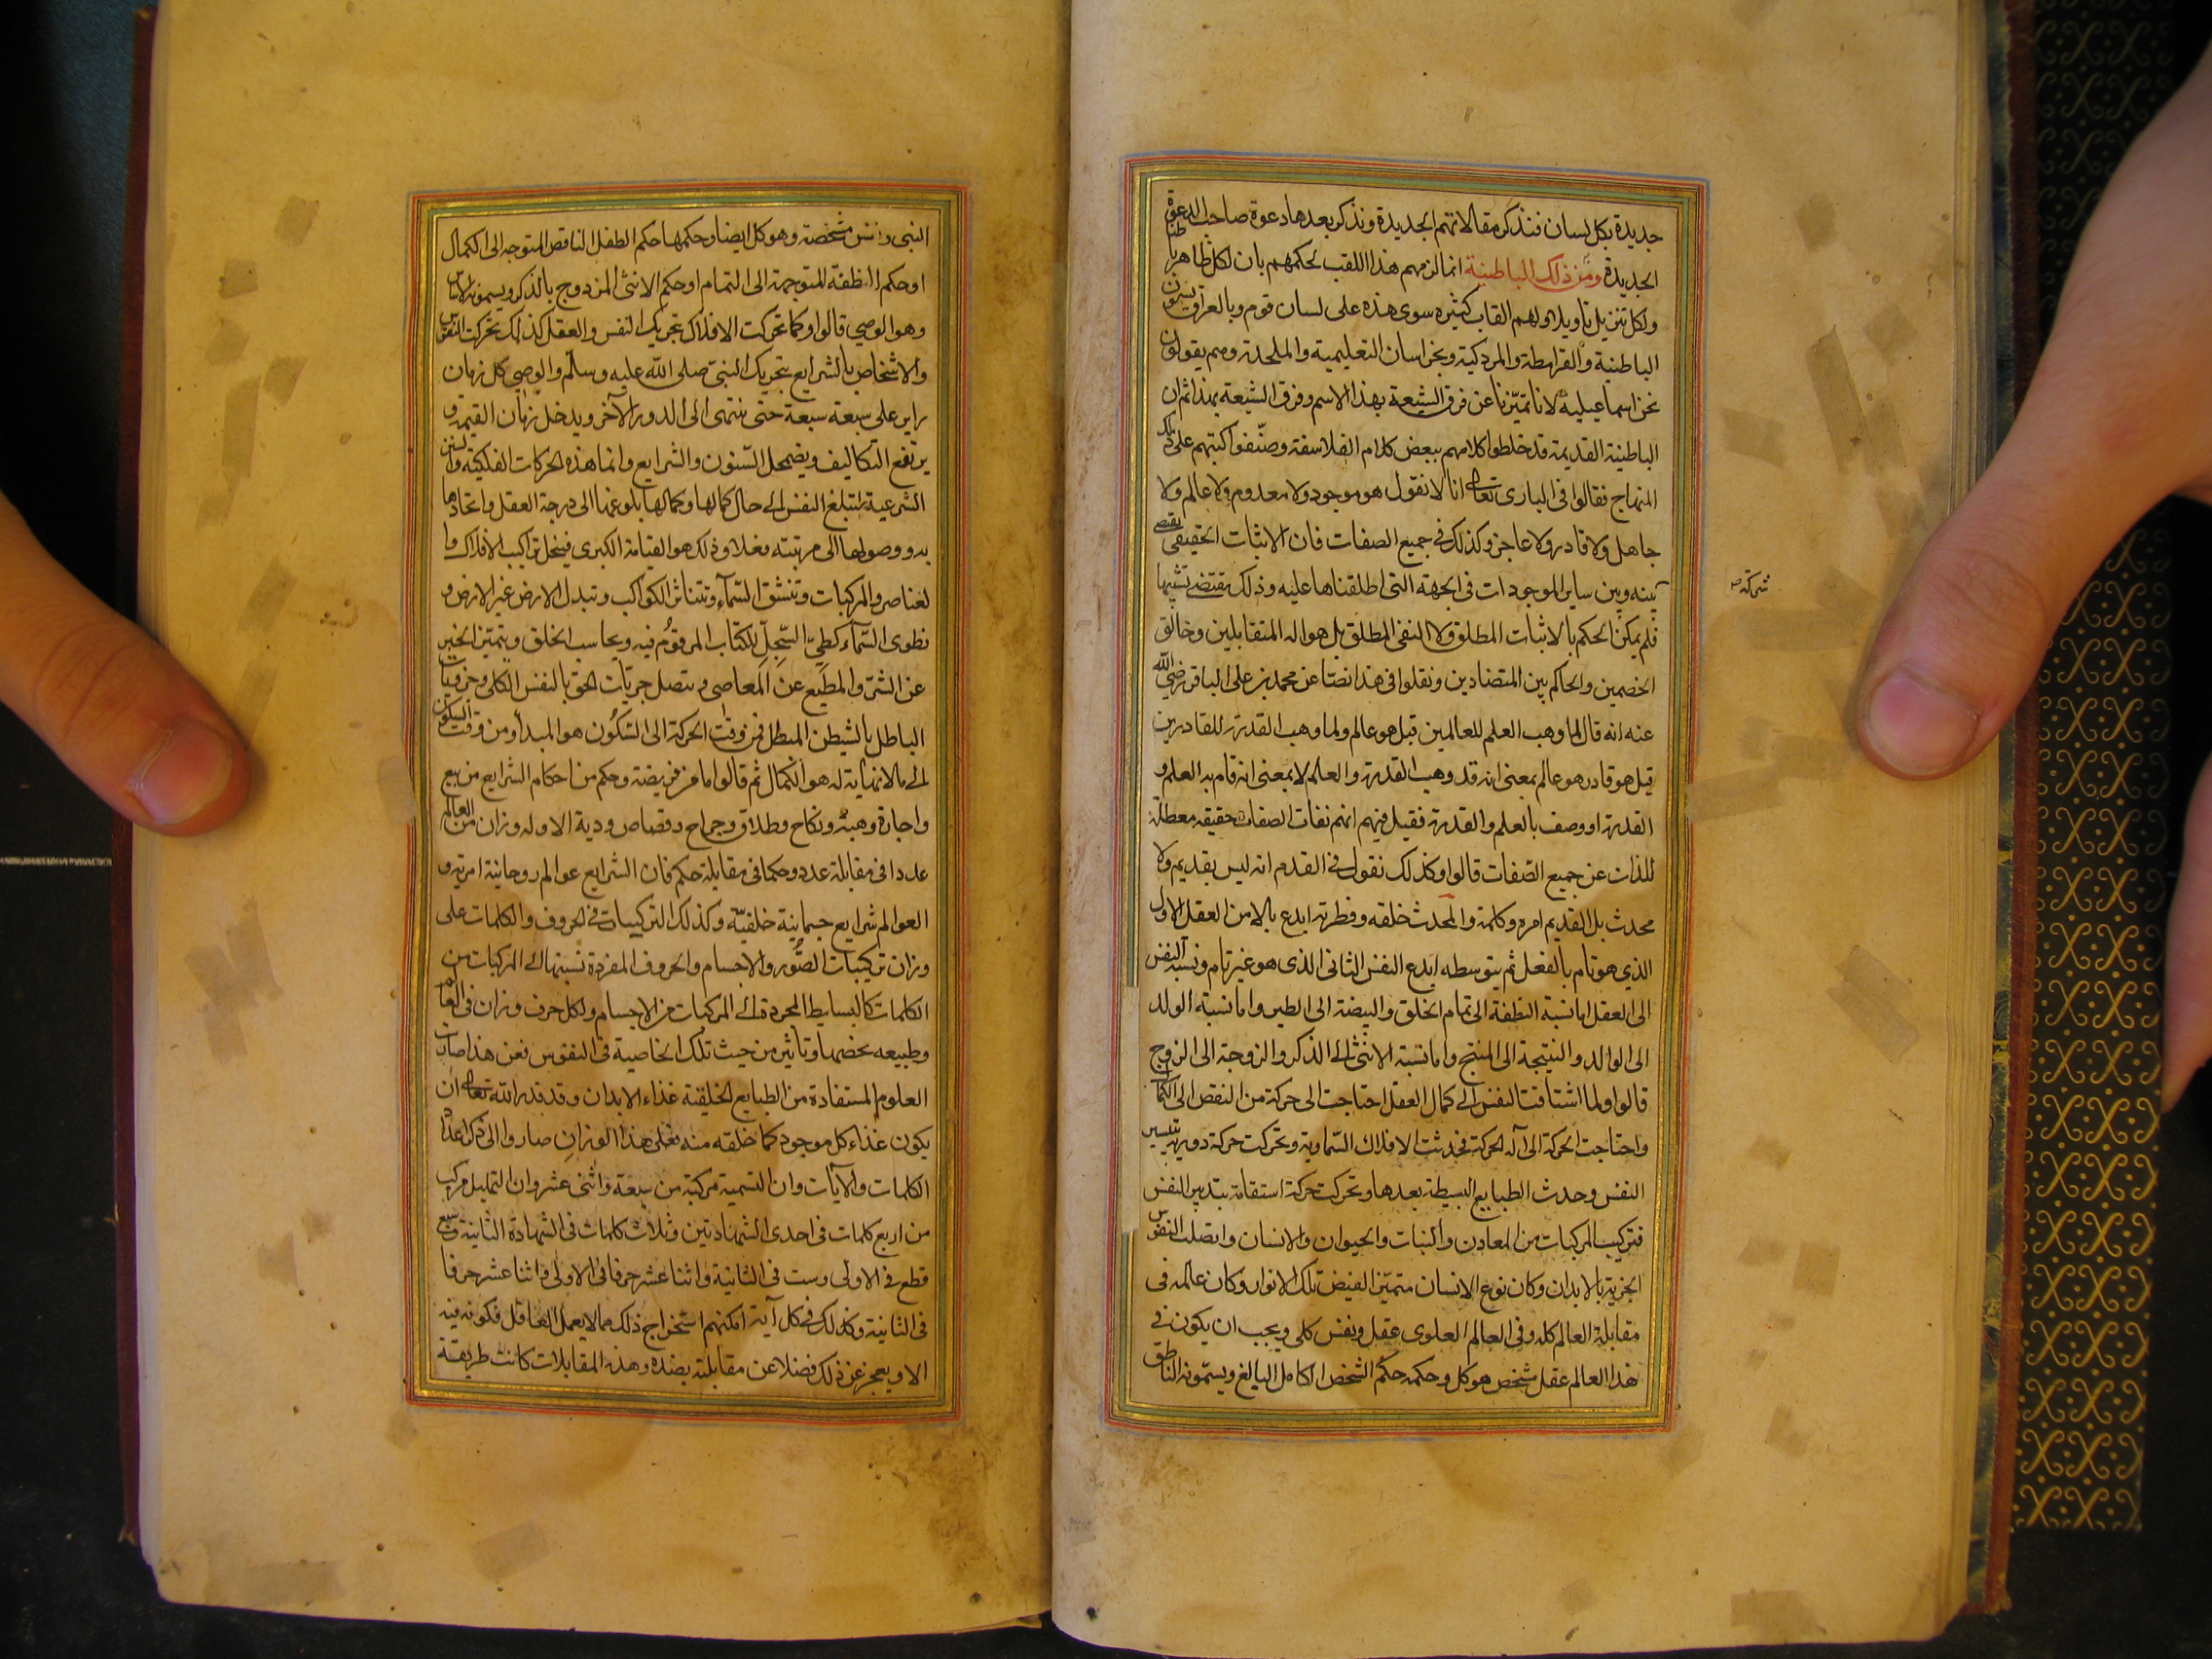 جديدة بكل لسان فنذكر مقالاتهم الجديدة ونذكر بعدها دعوة صاحب الدعوة
الجديدة ومن ذلك الباطنية انما لزمهم هذا اللقب لحكمهم بان لكل ظاهر باطنا
ولكل تنزيل تاويلا ولهم القاب كثيره سوى هذه على لسان قوم وبالعراق يسمون
الباطنية والقرامطة والمزدكية وبخراسان التعليمية والملحدة وهم يقولون
نحن اسماعيلية لانا تميّزنا عن فرق الشيعة بهذا الاسم وفرق الشيعة بهذا ثم ان
الباطنية القديمة قد خلطوا كلامهم ببعض كلام الفلاسفة وصنّفوا كتبهم على ذلك
المنهاج فقالوا فى البارى تعالى انا لا نقول هو موجود ولا معدوم ولا عالم ولا
جاهل ولا قادر ولا عاجز وكذلك في جميع الصفات فان الاثبات الحقيقى يقتضى
شركة
بينه وبين ساير الموجودات فى الجهة التى اطلقناها عليه وذلك يقتضى تشبيها
فلم يمكن الحكم بالاثبات المطلق ولا النفى المطلق بل هو اله المتقابلين وخالق
الخصمين والحاكم بين المتضادين ونقلوا فى هذا نصّا عن محمد بن على الباقر رضي الله
عنه انه قال لما وهب العلم للعالمين قيل هو عالم ولما وهب القدرة للقادرين
قيل هو قادر هو عالم بمعنى انه قد وهب القدرة والعلم لا بمعنى انه قام به العلم و
القدرة او وصف بالعلم والقدرة فقيل فيهم انهم نفات الصفات حقيقه معطلة
للذات عن جميع الصّفات قالوا وكذلك نقول في القدم انه ليس بقديم ولا
محدث بل القديم امره وكلمة والمحدث خلقه وفطرته ابدع بالامر العقل الاول
الذي هو تام بالفعل ثم بتوسطه ابدع النفس الثانى الذى هو غير تام ونسبة النفس
الى العقل اما نسبة النطفة الى تمام الخلق والبيضة الى الطير واما نسبة الولد
الى الوالد والنتيجة الى المنتج واما نسبة الانثى الى الذكر والزوجة الى الزوج
قالوا ولما اشتاقت النفس الى كمال العقل احتاجت الى حركة من النقص الى الكمال
واحتاجت الحركة الى آلة الحركة فحدثت الافلاك السّماوية وتحركت حركة دورية بتدبير
النفس وحدث الطبايع البسيطة بعدها وتحركت حركة استقامة بتدبير النفس
فتركيب المركبات من المعادن والنبات والحيوان والانسان واتصلت النفوس
الجزية بالابدان وكان نوع الانسان متميّز الفيض تلك الانوار وكان عالمه فى
مقابلة العالم كله وفى العالم العلوى عقل ونفس كلى ويجب ان يكون في
هذا العالم عقل شخص هو كل وحكمه حكم الشخص الكامل البالغ ويسمّونه الناطق
النبى ونفس مشخصة وهو كل ايضا وحكمها حكم الطفل الناقص المتوجه الى الكمال
او حكم النطفة المتوجهة الى التمام او حكم الانثى المزدوج بالذكر ويسمونه الاساس
وهو الوصي قالوا وكما تحركت الافلاك بتحريك النفس والعقل كذلك تحركت النفوس
والاشخاص بالشرايع بتحريك النبى صلى الله عليه وسلم والوصي كل زمان
داير على سبعة سبعة حتى ينتهى الى الدور الآخر ويدخل زمان القيمة و
يرتفع التكاليف ويضمحل السّنون والشرايع وانما هذه الحركات الفلكية والسنن
الشرعية لتبلغ النفس الى حال كمالها وكمالها بلوغها الى درجة العقل واتحادها
به ووصولها الى مرتبته فعلا وذلك هو القيامة الكبرى فينحل تراكيب الافلاك وا
لعناصر والمركبات وتنشق السّمآء وتتناثر الكواكب وتبدل الارض غير الارض و
تطوى السّمآء كطيّ السّجلّ للكتاب المرقوم فيه ويحاسب الخلق ويتميّز الخير
عن الشرّ والمطيع عن المعاصى ويتصل جزيات الحق بالنفس الكلى وجزويات
الباطل بالشيطن المبطل فمن وقت الحركة الى السّكون هو المبدأ ومن وقت السكون
الى ما لا نهاية له هو الكمال ثم قالوا ما من فريضة وحكم من احكام الشرايع من بيع
واجارة وهبة ونكاح وطلاق وجراح وقصاص ودية الا وله وزان من العالم
عددا فى مقابلة عدد وحكما فى مقابلة حكم فان الشرايع عوالم روحانية امرية و
العوالم شرايع جسمانية خلقيّة وكذلك التركيبات فى الحروف والكلمات على
وزان تركيبات الصّور والاجسام والحروف المفردة نسبتها الى المركبات من
الكلمات كالبسايط المجردة الى المركبات من الاجسام ولكل حرف وزان فى العالم
وطبيعه يخصها وتاثير من حيث تلك الخاصية فى النفوس فعن هذا صارت
العلوم المستفادة من الطبايع الخلقية غذاء الابدان وقد قدر الله تعالى ان
يكون غذاء كل موجود كما خلقه منه فعلى هذا الوزان صاروا الى ذكر اعداد
الكلمات والآيات وان التسمية مركبة من سبعة واثنى عشر وان التهليل مركب
من اربع كلمات فى احدى الشهادتين وثلاث كلمات فى الشهادة الثانية وسبع
قطع في الاولى وست فى الثانية واثنا عشر حرفا فى الاولى واثنا عشر حرفا
فى الثانية وكذلك في كل آية امكنهم استخراج ذلك مما لا يعمل العاقل فكرته فيه
الا ويعجز عن ذلك فضلا عن مقابلته بضده وهذه المقابلات كانت طريقة